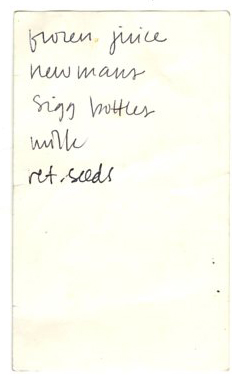 frozen juice
newmans
Sigg bottles
milk
ret. seeds